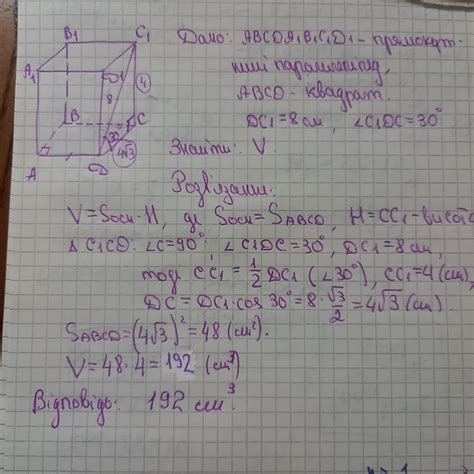 B₁ C₁
A₁ D₁ 4
8
B C
30°
4√3
A D
Дано: ABCDA₁B₁C₁D₁ - прямокут-
ний паралелепіпед,
ABCD - квадрат.
DC₁ = 8 см, ∠C₁DC = 30°
Знайти: V.
Розв'язання:
V = Sосн · H, де Sосн = SABCD, H = CC₁ - висота
Δ C₁CD: ∠C = 90°; ∠C₁DC = 30°, DC₁ = 8 см,
тоді CC₁ = 1/2 DC₁ (∠30°), CC₁ = 4 (см),
DC = DC₁ · cos 30° = 8 · √3/2 = 4√3 (см).
SABCD = (4√3)² = 48 (см²).
V = 48 · 4 = 192 (см³)
Відповідь: 192 см³.